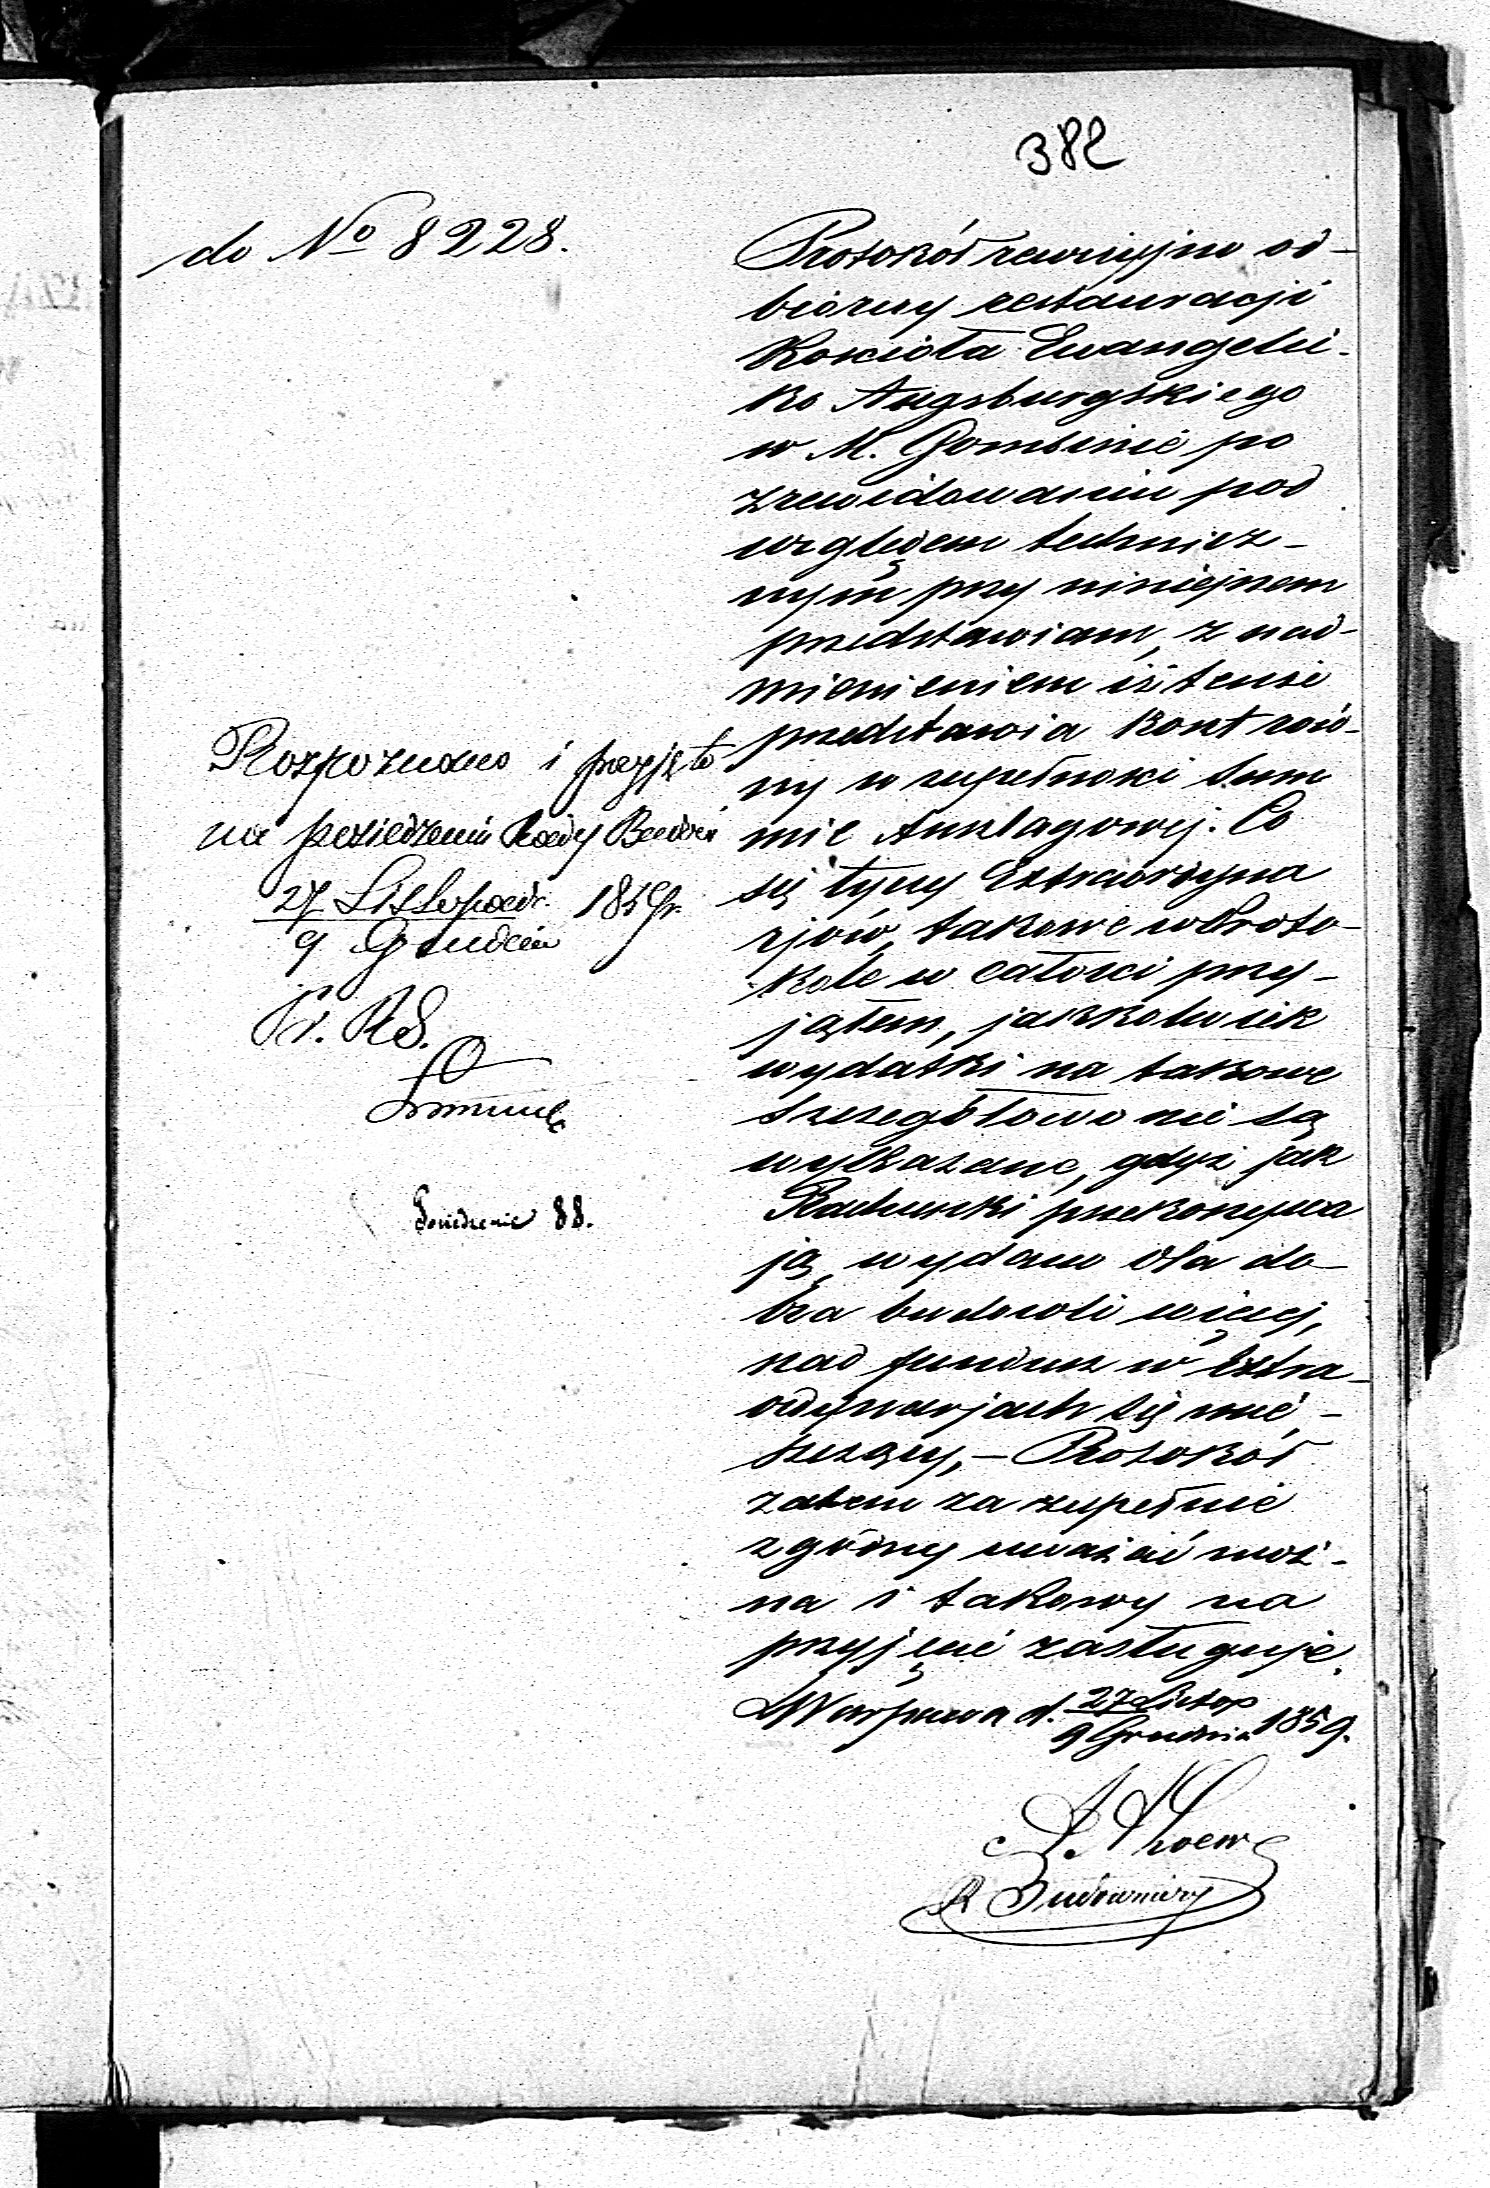 382
do No 8228.
Protokół rewizyjno od-
biorczy restauracji
Kościoła Ewangelic-
ko Augsburgskiego
w M. Gombinie po
zrewidowaniu pod
względem technicz-
nym przy niniejszem
przedstawiam, z nad-
mienieniem iż tenże
przedstawia kont roboć-
ny w zupełności sum
mie Anszlagowej. Co
się tyczy Extraordyna
rjów, takowe w Proto-
kole w całości przy-
jąłem, jakkolwiek
wydatki na takowe
szczegółowo nie są
wykazane, gdyż jak
Rachunki przekonywa
ją, wydano dla do-
bra budowli więcej,
nad fundusz w Extra-
ordynarjach się mie-
szczący, – Protokół
zatem za zupełnie
zgodny uważać moż-
na i takowy na
przyjęcie zasługuje.
Warszawa d. 27 Listop
9 Grudnia 1859.
Budowniczy
Rozpoznano i przyjęto
na posiedzeniu Rady Budow
27 Listopada 1859 r.
9 Grudnia
Posiedzenie 88.